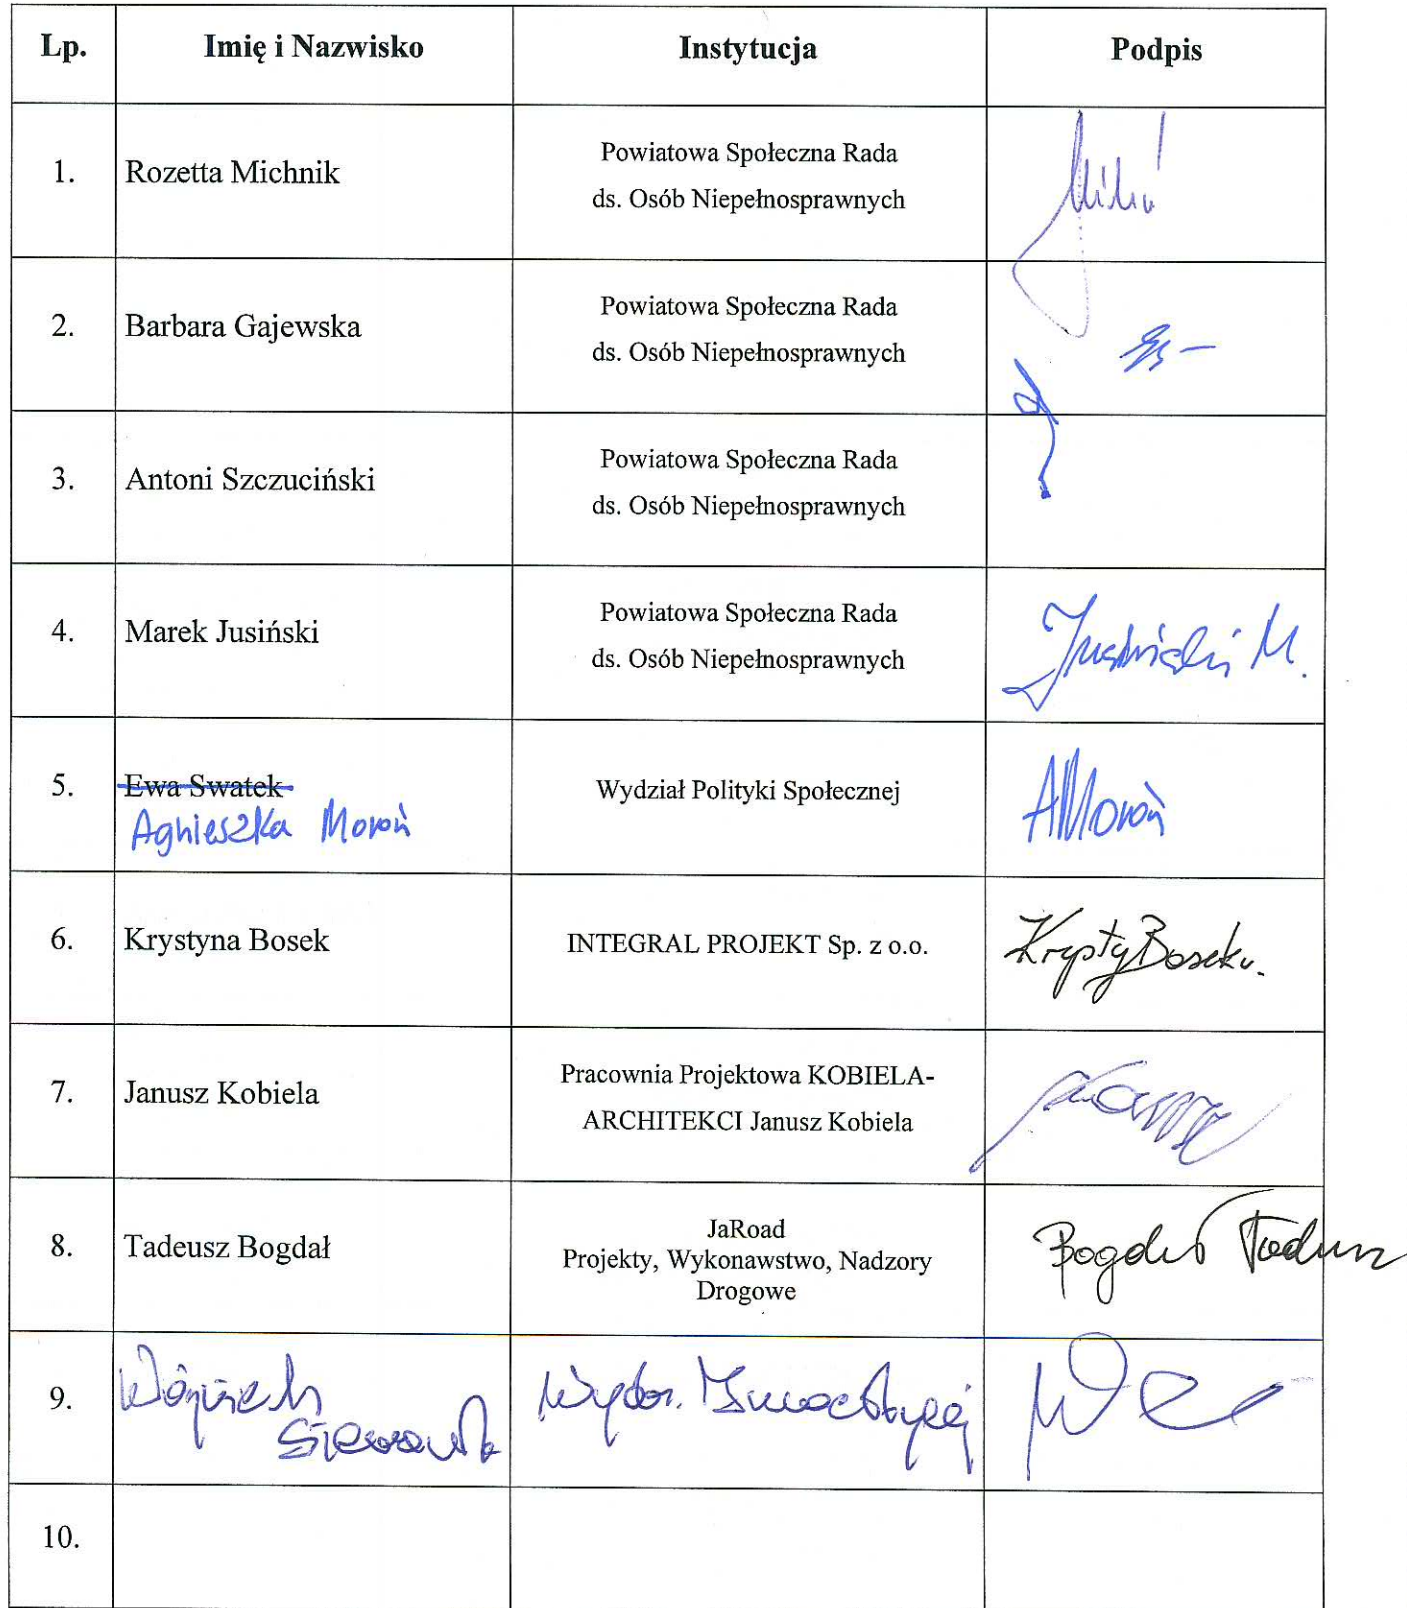 Lp. Imię i Nazwisko Instytucja Podpis
1. Rozetta Michnik Powiatowa Społeczna Rada
ds. Osób Niepełnosprawnych
2. Barbara Gajewska Powiatowa Społeczna Rada
ds. Osób Niepełnosprawnych
3. Antoni Szczuciński Powiatowa Społeczna Rada
ds. Osób Niepełnosprawnych
4. Marek Jusiński Powiatowa Społeczna Rada
ds. Osób Niepełnosprawnych
Jusiński M.
5. Ewa Swatek Wydział Polityki Społecznej
Agnieszka Moroń AMoroń
6. Krystyna Bosek INTEGRAL PROJEKT Sp. z o.o.
7. Janusz Kobiela Pracownia Projektowa KOBIELA-
ARCHITEKCI Janusz Kobiela
8. Tadeusz Bogdał JaRoad
Projekty, Wykonawstwo, Nadzory
Drogowe
Bogdał Tadeusz
9.
10.